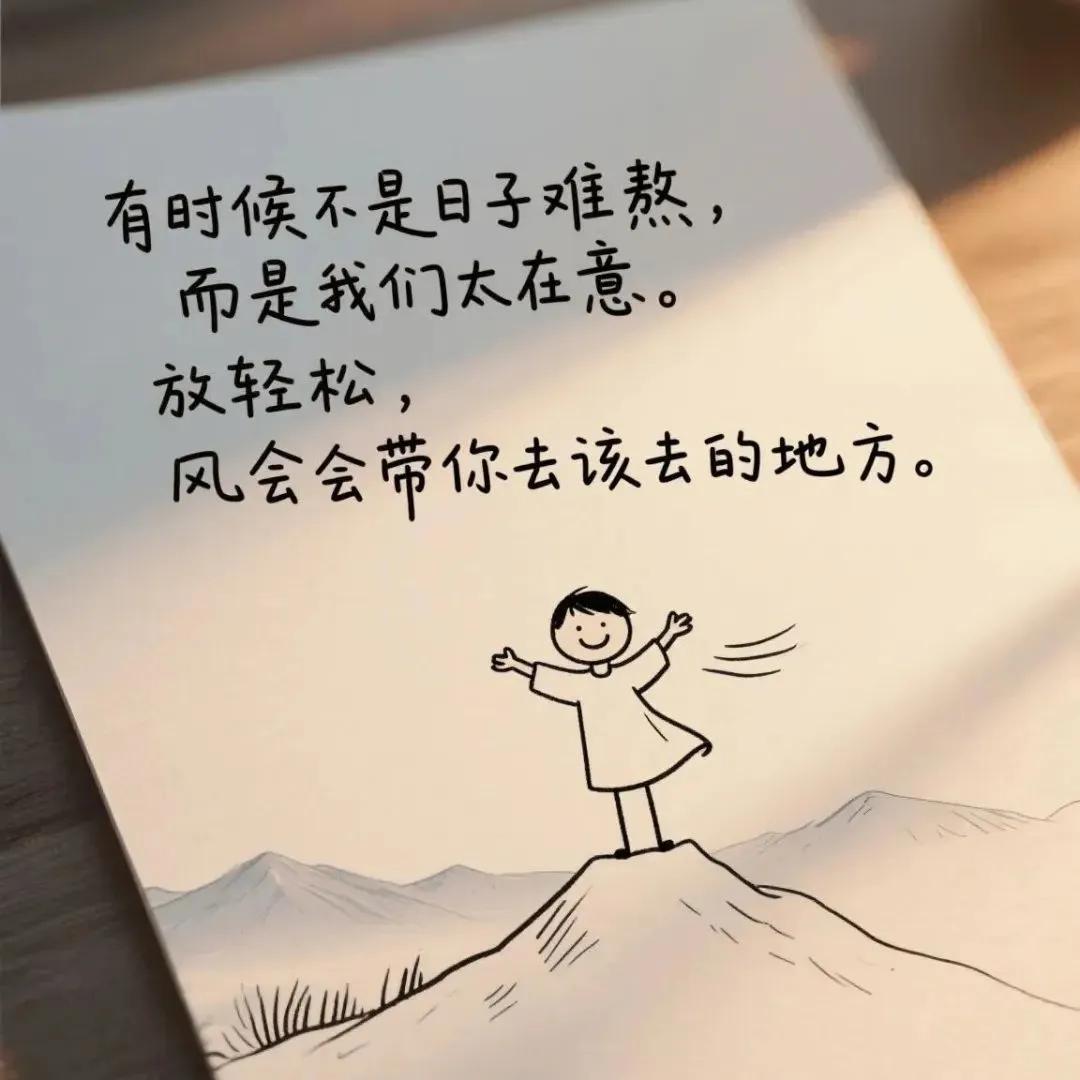 有时候不是日子难熬，
而是我们太在意。
放轻松，
风会会带你去该去的地方。